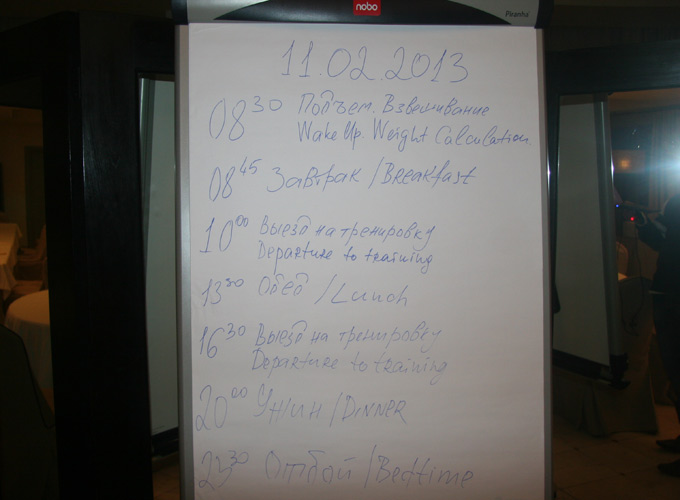 nobo
Piranha
11.02.2013
08 30 Подъем. Взвешивание
Wake Up. Weight Calculation
08 45 Завтрак / Breakfast
10 00 Выезд на тренировку
Departure to training
13 30 Обед / Lunch
16 30 Выезд на тренировку
Departure to training
20 00 Ужин / Dinner
23 30 Отбой / Bedtime